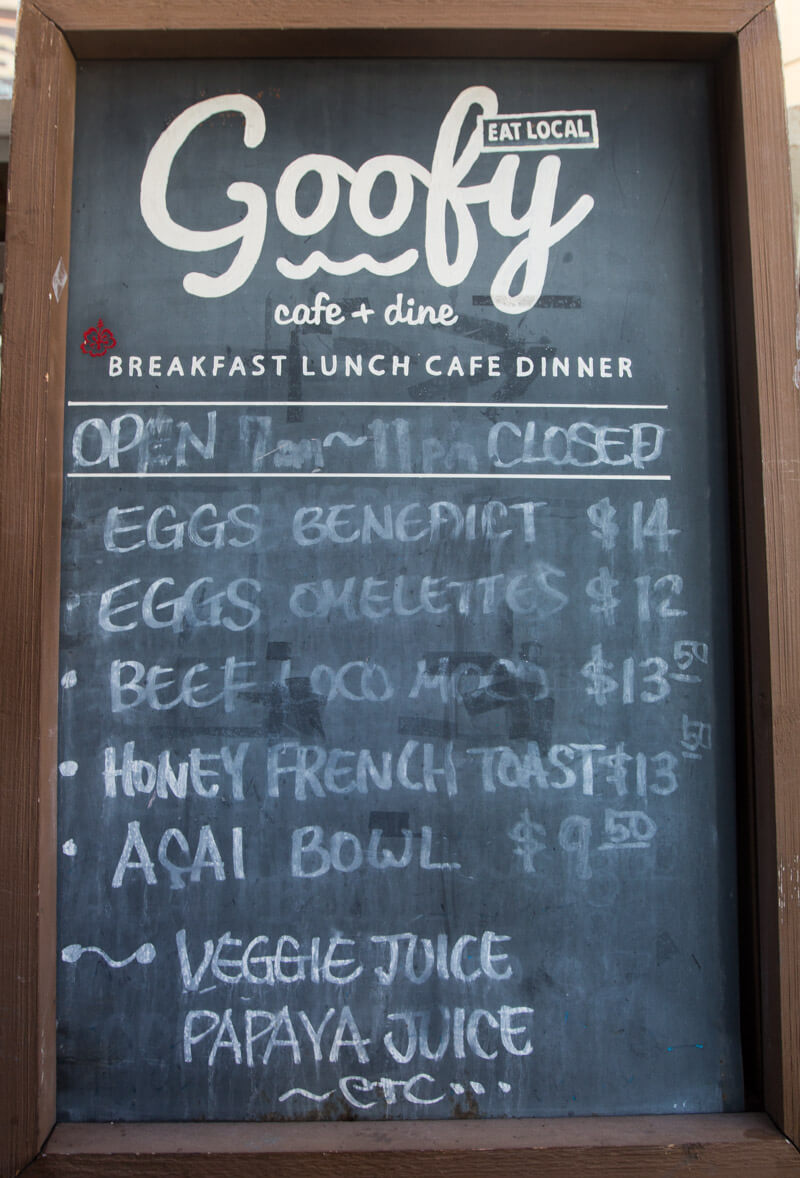 Goofy
EAT LOCAL
cafe + dine
BREAKFAST LUNCH CAFE DINNER
OPEN 7am~11pm CLOSED
EGGS BENEDICT $14
EGGS OMELETTES $12
• BEEF LOCO MOCO $13.50
• HONEY FRENCH TOAST $13.50
• AÇAI BOWL $9.50
VEGGIE JUICE
PAPAYA JUICE
~ETC...